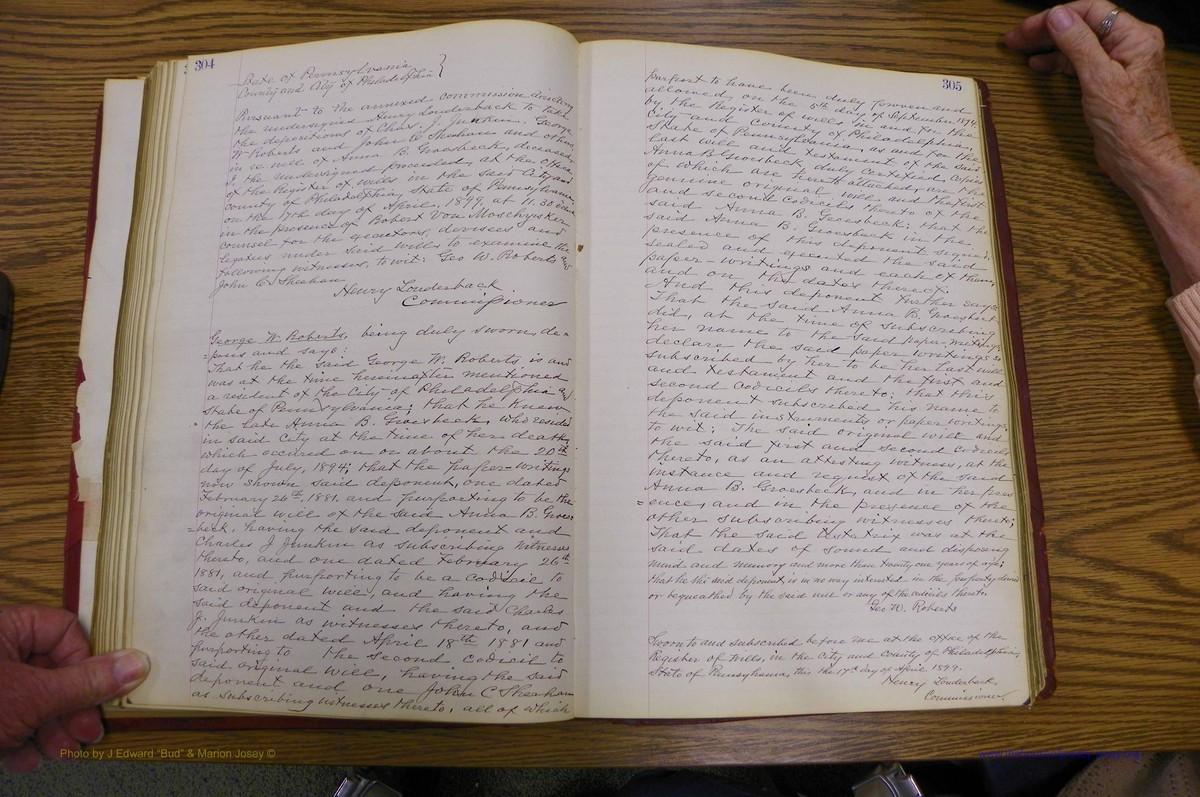 304
State of Pennsylvania
County and City of Philadelphia
Pursuant to the annexed commission directing
the undersigned Henry Louderback to take
the depositions of Chas. J. Junkin. George
W Roberts and John C Sheahan and others
in re will of Anna B. Groesbeck, deceased,
I the undersigned proceeded, at the office
of the Register of wills in the said City and
county of Philadelphia, State of Pennsylvania,
on the 17th day of April, 1899, at 11.30
in the presence of Robert Von Moschzisker
counsel for the executors, devisees and
legatees under said wills to examine the
following witnesses, to wit: Geo W. Roberts and
John C. Sheahan
Henry Louderback
Commissioner
George W. Roberts, being duly sworn de-
=poses and says:
That he the said George W. Roberts is and
was at the time hereinafter mentioned
a resident of the City of Philadelphia and
State of Pennsylvania; that he knew
the late Anna B. Groesbeck, who resided
in said City at the time of her death,
which occured on or about the 20th
day of July, 1894; that the paper-writing
now shown said deponent, one dated
February 26th, 1881, and purporting to be the
original will of the said Anna B. Groes-
=beck, having the said deponent and
Charles J Junkin as subscribing witnesses
thereto, and one dated February 26th
1881, and purporting to be a codicil to
said original will, and having the
said deponent and the said Charles
J. Junkin as witnesses thereto, and
the other dated April 18th 1881 and
purporting to the second codicil to
said original will, having the said
deponent and one John C Sheahan
as subscribing witnesses thereto, all of which
305
purport to have been duly proven and
allowed, on the 5th day of September 1894
by the Register of wills in and for the
City and County of Philadelphia,
State of Pennsylvania, as and for the
last will and testament of the said
Anna B. Groesbeck, duly certified copies
of which are hereto attached, are the
genuine original will and the first
and second codicils thereto of the
said Anna B. Groesbeck; that the
said Anna B. Groesbeck in the
presence of this deponent signed,
sealed and executed the said
paper-writings and each of them,
and on the dates thereof;
And this deponent further says:
That the said Anna B. Groesbeck
did, at the time of subscribing
her name to the said paper-writings,
declare the said paper writings so
subscribed by her to be her last will
and testament and the first and
second codicils thereto; that this
deponent subscribed his name to
the said instruments or paper writings.
to wit; The said original will and
the said first and second codicils
thereto, as an attesting witness, at the
instance and request of the said
Anna B. Groesbeck, and in her pres
=ence, and in the presence of the
other subscribing witnesses thereto;
That the said testatrix was at the
said dates of sound and disposing
mind and memory and more than twenty one years of age;
that he the said deponent, is in no way interested in the property devised
or bequeathed by the said will or any of the codicils thereto.
Geo W. Roberts
Sworn to and subscribed before me at the office of the
Register of Wills, in the City and County of Philadelphia,
State of Pennsylvania, this the 17th day of April 1899.
Henry Louderback
Commissioner.
Photo by J Edward "Bud" & Marion Josey ©